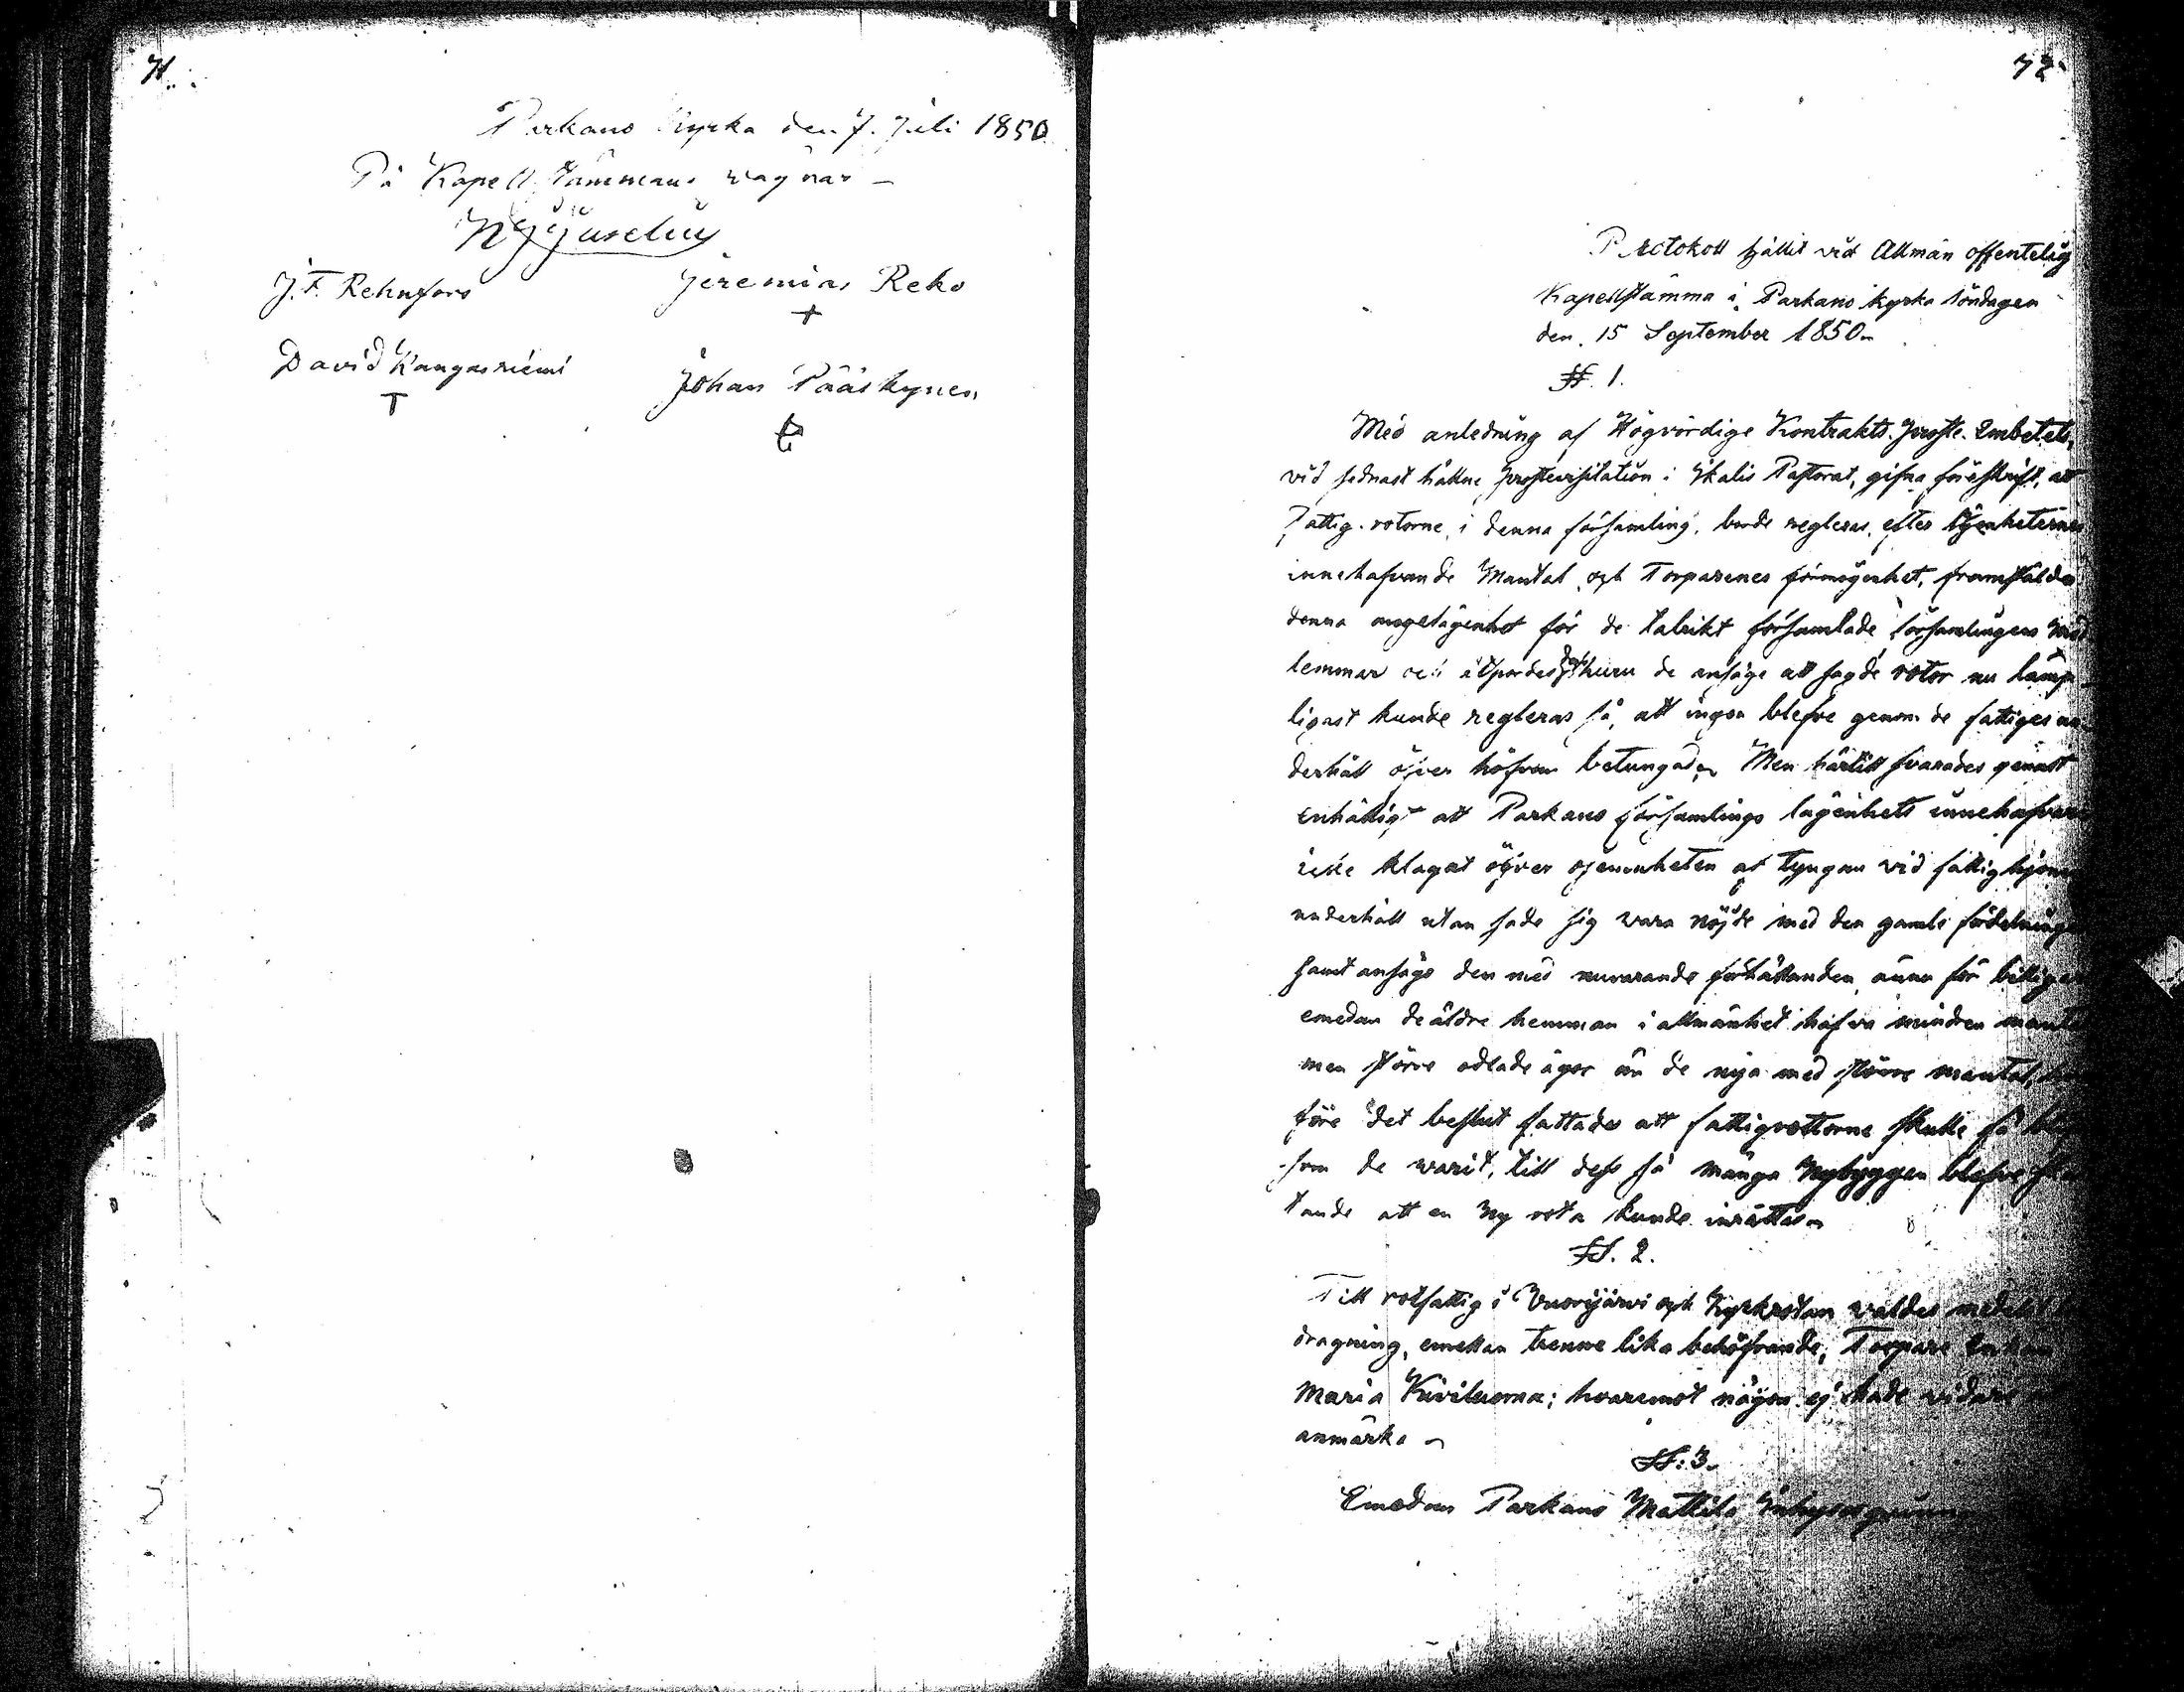 71.
Parkano kyrka den 7. Juli 1850.
På Kapellstämmans wägnar –
J. F. Rehnfors Jeremias Reko
+
David Kangasniemi Johan Pääskynen
T
72.
Protokoll hållit vid Allmän offentelig
Kapellstämma i Parkano kyrka söndagen
den 15 September 1850.
§§. 1.
Med anledning af Högvördige Kontrakts-Proste-Embetets,
vid sednast hållne prostevisitation i Ikalis Pastorat, gifna föreskrift, att
Fattig-rotorne i denna församling, borde regleras efter lägenheternes
innehafvande Mantal och Torparenes förmögenhet, framstäldes
denna angelägenhet för de talrikt församlade församlingens med
lemmar och åtspordes huru de ansågo att sagde rotor nu lämp-
ligast kunde regleras så, att ingen blefve genom de fattiges un-
derhåll öfver höfvan betungade. Men härtill svarades genast
enhälligt att Parkano församlings lägenhets innehafvare
icke klagat öfver ojemnheten af tyngan vid fattighjons
underhåll utan sade sig vara nöjde med den gamla fördelningen
samt ansågo den med nuvarande förhållanden ännu för billigare
emedan de äldre hemman i allmänhet hafva mindre mantal
men större odlade ägor än de nya med större mantal,
före det beslut fattades att fattigrottorne skulle så
som de warit, till dess så många Nybyggen blefve
tande att en Ny rota kunde inrättas.
§§. 2.
Till rotfattig i Vuorijärwi och Kyrkrotan waldes medelst
dragning, emellan trenne lika behöfvande, Torpare Enkan
Maria Kiviluoma; hvaremot någon ej hade vidare
anmärka –
§§. 3.
Emedan Parkano Mattila